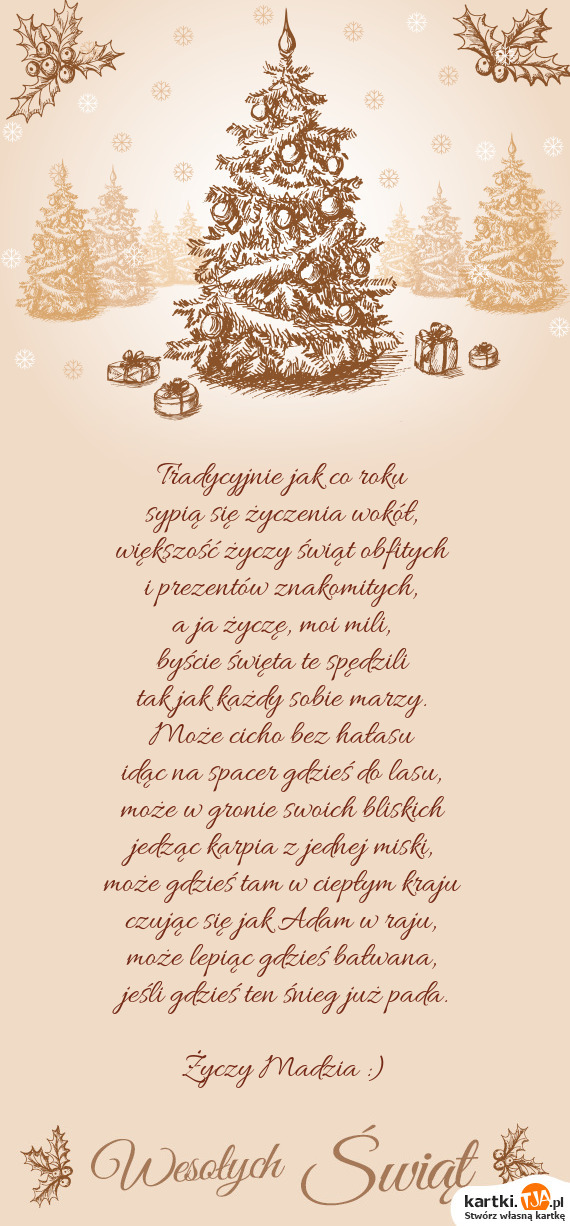 Tradycyjnie jak co roku
sypią się życzenia wokół,
większość życzy świąt obfitych
i prezentów znakomitych,
a ja życzę, moi mili,
byście święta te spędzili
tak jak każdy sobie marzy.
Może cicho bez hałasu
idąc na spacer gdzieś do lasu,
może w gronie swoich bliskich
jedząc karpia z jednej miski,
może gdzieś tam w ciepłym kraju
czując się jak Adam w raju,
może lepiąc gdzieś bałwana,
jeśli gdzieś ten śnieg już pada.
Życzy Madzia :)
Wesołych Świąt
kartki.TJA.pl
Stwórz własną kartkę